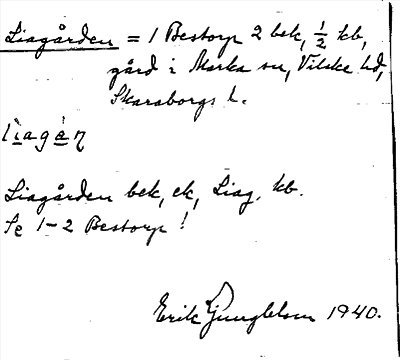 Liagården = 1 Bestorp 2 bek, ½ kb,
gård i Marka sn, Vilske hd,
Skaraborgs l.
liagàṇ
Liagården bek, ek, Liag. kb.
Se 1-2 Bestorp!
Erik Ljungblom 1940.